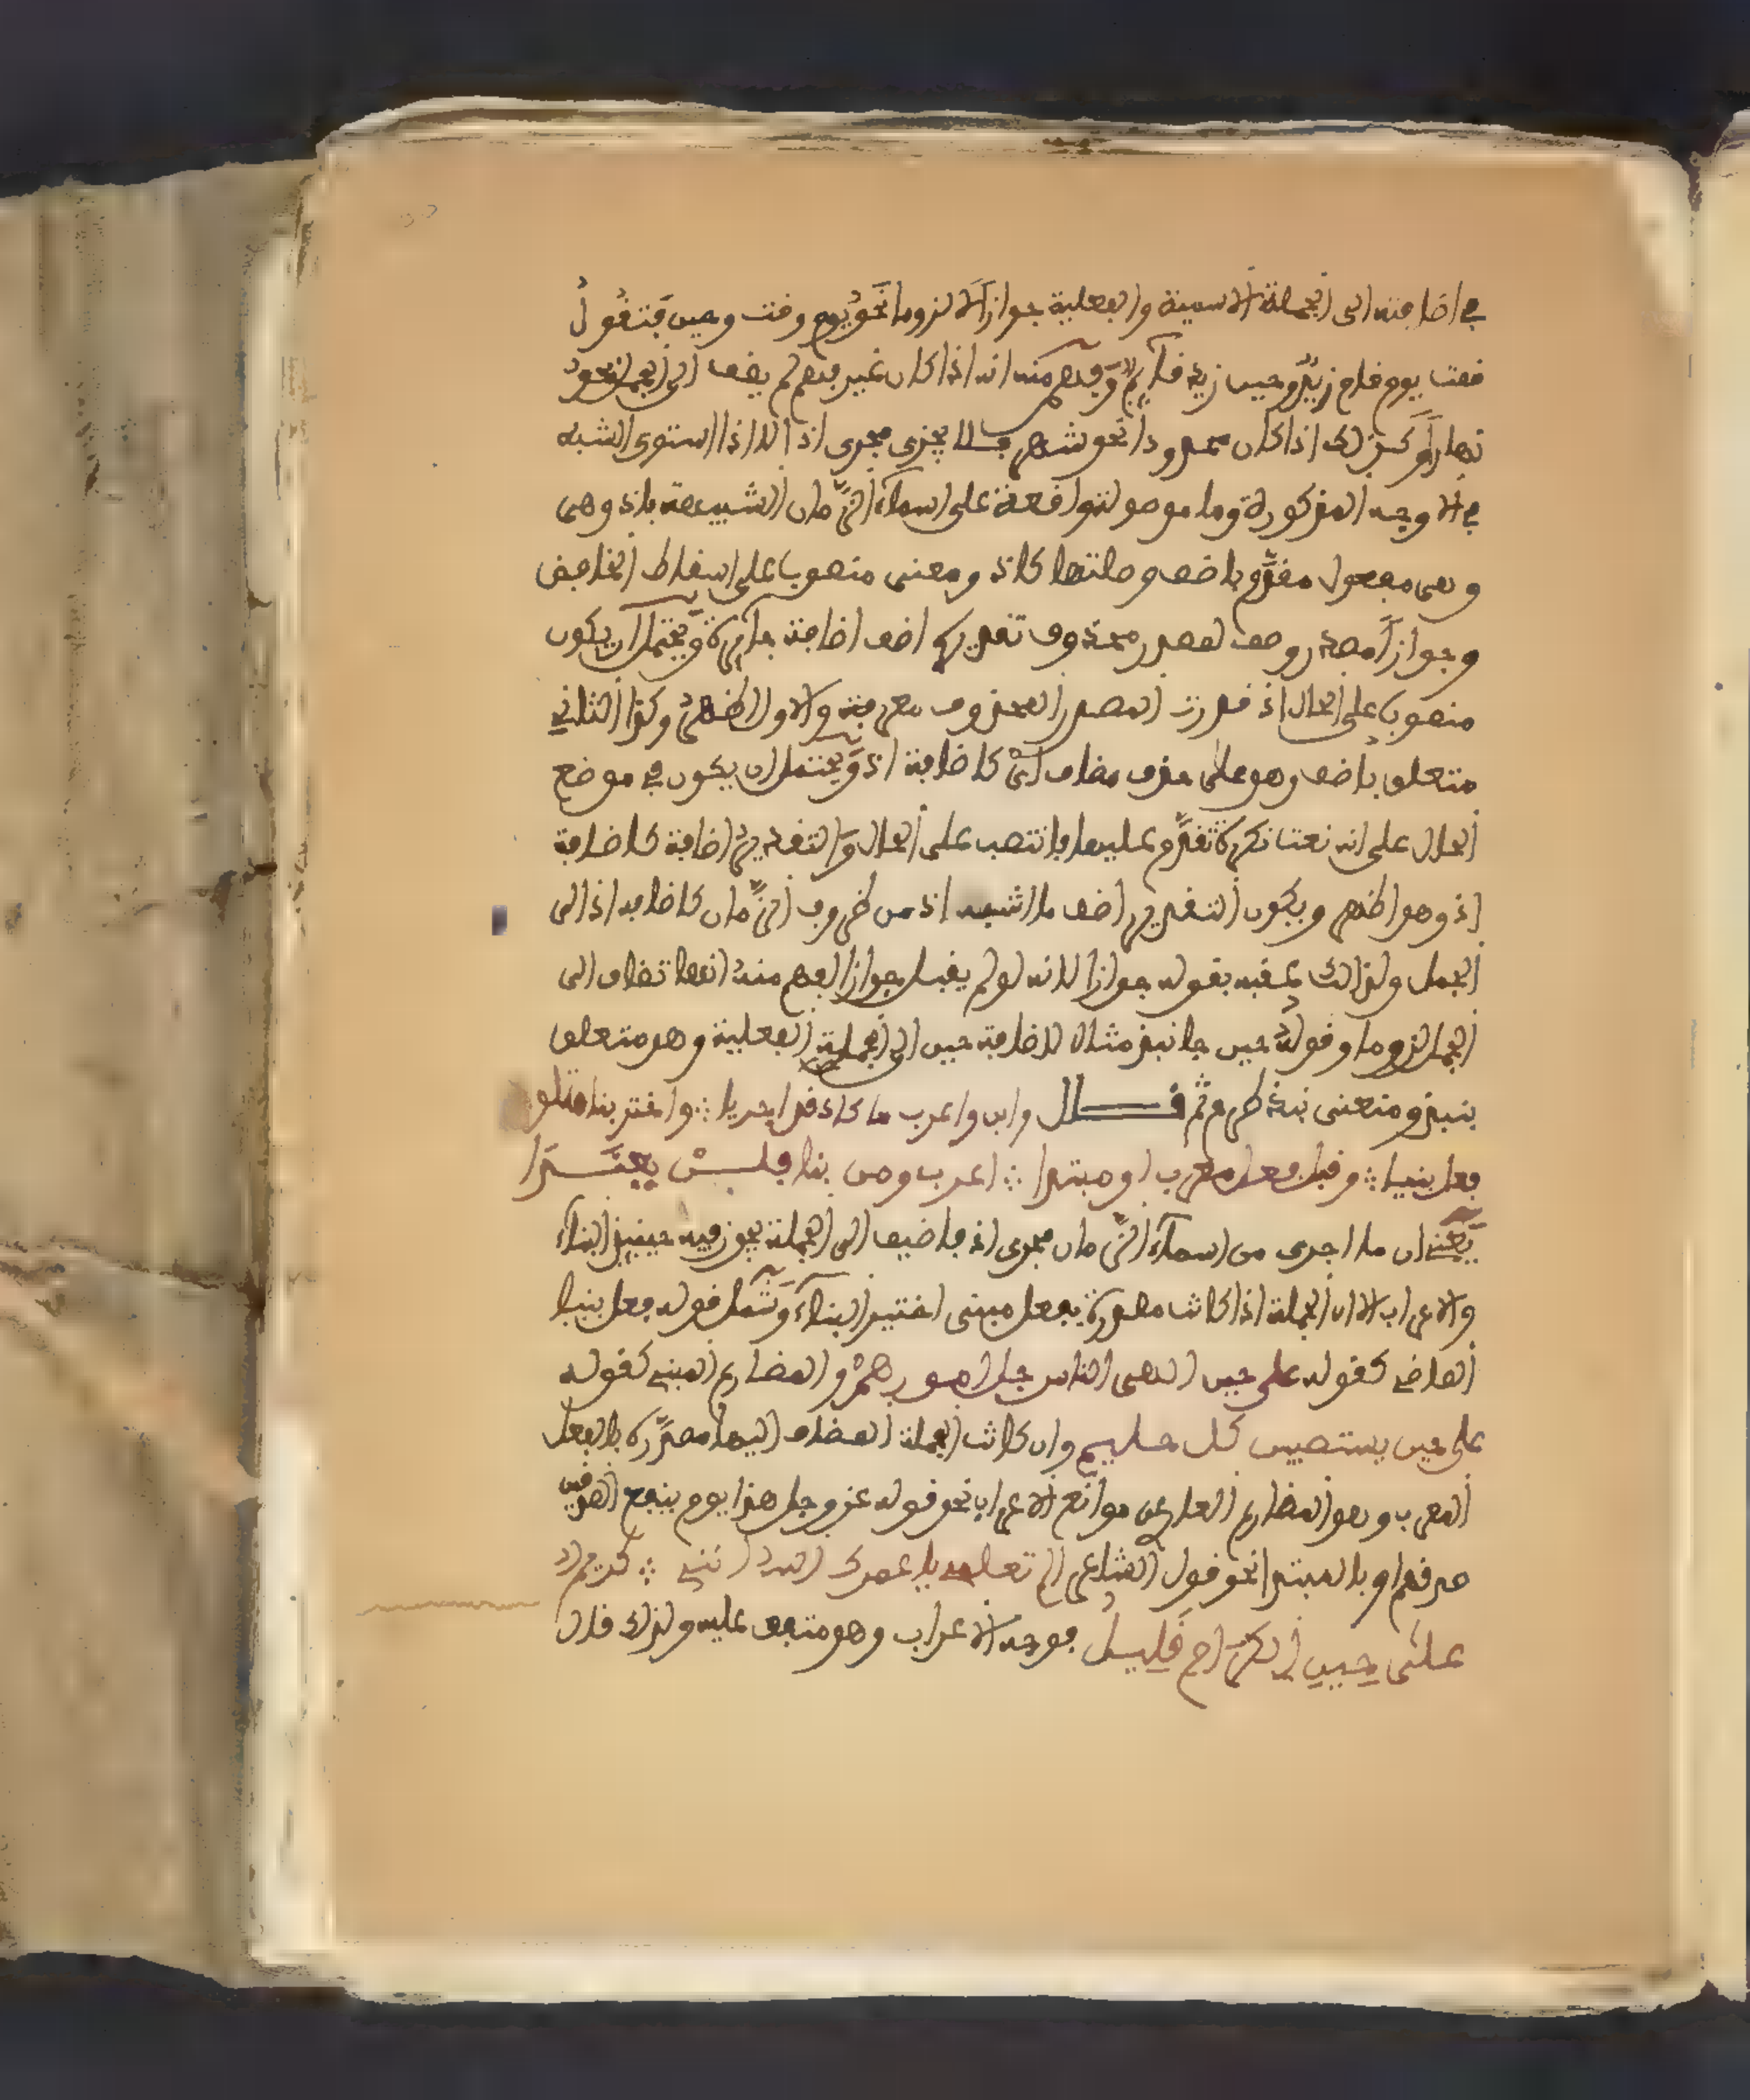 في اضافته الى الجملة الاسمية والفعلية جوازا لا لزوما نحو يوم وقت وحين فتقول
قمت يوم قام زيد وحين زيد قايم وفهم منه انه اذا كان غير مبهم لم يضف الى الجمل نحو
نهار وكذلك اذا كان محدودا نحو شهر فلا يجرى مجرى اذ الا اذا استوى الشبه
في الاوجه المذكورة وما موصولة واقعة على اسماء الزمان الشبيهة باذ وهي
وهي مفعول مقدم باضف وصلتها كاذ ومعنى منصوب على اسقاط الخافض
وجوازا مصدر وصف لمصدر محذوف تقديره اضف اضافة جايزة ويحتمل ان يكون
منصوبا على الحال اذ قدرت المصدر المحذوف معرفة والاول اظهر وكذا الثاني
متعلق باضف وهو على حذف مضاف اي كاضافة اذ ويحتمل ان يكون في موضع
الحال على انه نعت نكرة تقدم عليها فانتصب على الحال والتقدير اضافة كاضافة
اذ وهو اظهر ويكون التقدير اضف ما اشبه اذ من ظروف الزمان كاضافة اذ الى
الجمل ولذلك عقبه بقوله جوازا لانه لو لم يقل جوازا لفهم منه انها تضاف الى
الجمل لزوما وقوله حين جا نبذ مثال لاضافة حين الى الجملة الفعلية وهو متعلق
بنبذ ومعنى نبذ طرح ثم قال وابن واعرب ما كاذ قد اجريا ∴ واختر بنا متلو
فعل بنيا ∴ وقبل فعل معرب او مبتدا ∴ اعرب ومن بنا فلن يفندا
يعني ان ما اجرى من اسماء الزمان مجرى اذ فاضيف الى الجملة يجوز فيه حينيذ البناء
والاعراب الا ان الجملة اذا كانت مصدرة بفعل مبني اختير البناء وشمل قوله فعل بنيا
الماضي كقوله على حين الهى الناس جل امورهم والمضارع المبني كقوله
على حين يستصبين كل حليم وان كانت الجملة المضاف اليها مصدرة بالفعل
المعرب وهو المضارع العاري من موانع الاعراب نحو قوله عز وجل هذا يوم ينفع الصدقين
صدقهم او بالمبتدا نحو قول الشاعر الم تعلمي يا عمرك الله انني ∴ كريم
على حين الكرام قليل فوجه الاعراب وهو متفق عليه ولذلك قال